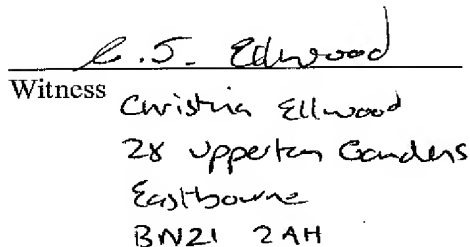 C.J. Ellwood
Witness
Christina Ellwood
28 Upperton Gardens
Eastbourne
BN21 2AH